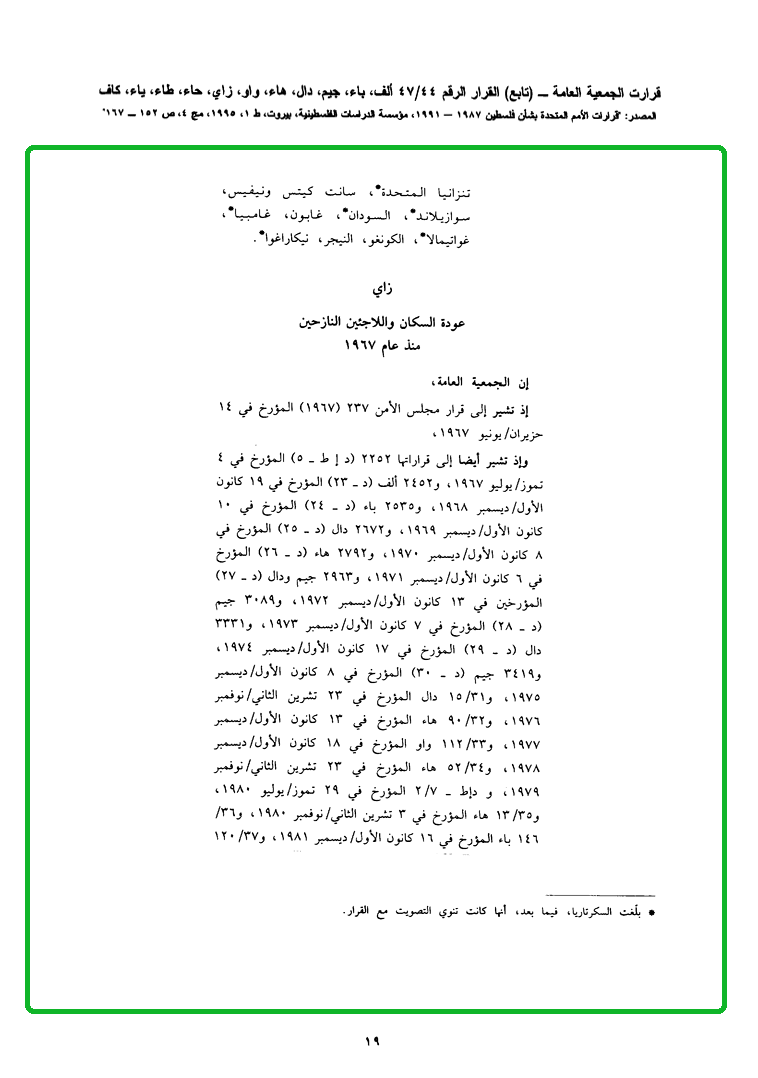 قرارت الجمعية العامة ــ (تابع) القرار الرقم ٤٧/٤٤ ألف، باء، جيم، دال، هاء، واو، زاي، حاء، طاء، ياء، كاف
المصدر: "قرارات الأمم المتحدة بشأن فلسطين ١٩٨٧ – ١٩٩١، مؤسسة الدراسات الفلسطينية، بيروت، ط ١، ١٩٩٥، مج ٤، ص ١٥٢ ــ ١٦٧"
تنزانيا المتحدة*، سانت كيتس ونيفيس،
سوازيلاند*، السودان*، غابون، غامبيا*،
غواتيمالا*، الكونغو، النيجر، نيكاراغوا*.
زاي
عودة السكان واللاجئين النازحين
منذ عام ١٩٦٧
إن الجمعية العامة،
إذ تشير إلى قرار مجلس الأمن ٢٣٧ (١٩٦٧) المؤرخ في ١٤
حزيران/يونيو ١٩٦٧،
وإذ تشير أيضا إلى قراراتها ٢٢٥٢ (د إ ط ــ ٥) المؤرخ في ٤
تموز/يوليو ١٩٦٧، و٢٤٥٢ ألف (د ــ ٢٣) المؤرخ في ١٩ كانون
الأول/ديسمبر ١٩٦٨، و٢٥٣٥ باء (د ــ ٢٤) المؤرخ في ١٠
كانون الأول/ديسمبر ١٩٦٩، و٢٦٧٢ دال (د ــ ٢٥) المؤرخ في
٨ كانون الأول/ديسمبر ١٩٧٠، و٢٧٩٢ هاء (د ــ ٢٦) المؤرخ
في ٦ كانون الأول/ديسمبر ١٩٧١، و٢٩٦٣ جيم ودال (د ــ ٢٧)
المؤرخين في ١٣ كانون الأول/ديسمبر ١٩٧٢، و٣٠٨٩ جيم
(د ــ ٢٨) المؤرخ في ٧ كانون الأول/ديسمبر ١٩٧٣، و٣٣٣١
دال (د ــ ٢٩) المؤرخ في ١٧ كانون الأول/ديسمبر ١٩٧٤،
و٣٤١٩ جيم (د ــ ٣٠) المؤرخ في ٨ كانون الأول/ديسمبر
١٩٧٥، و١٥/٣١ دال المؤرخ في ٢٣ تشرين الثاني/نوفمبر
١٩٧٦، و٩٠/٣٢ هاء المؤرخ في ١٣ كانون الأول/ديسمبر
١٩٧٧، و١١٢/٣٣ واو المؤرخ في ١٨ كانون الأول/ديسمبر
١٩٧٨، و٥٢/٣٤ هاء المؤرخ في ٢٣ تشرين الثاني/نوفمبر
١٩٧٩، و دإط ــ ٢/٧ المؤرخ في ٢٩ تموز/يوليو ١٩٨٠،
و١٣/٣٥ هاء المؤرخ في ٣ تشرين الثاني/نوفمبر ١٩٨٠، و٣٦/
١٤٦ باء المؤرخ في ١٦ كانون الأول/ديسمبر ١٩٨١، و١٢٠/٣٧
* بلّغت السكرتاريا، فيما بعد، أنها كانت تنوي التصويت مع القرار.
١٩